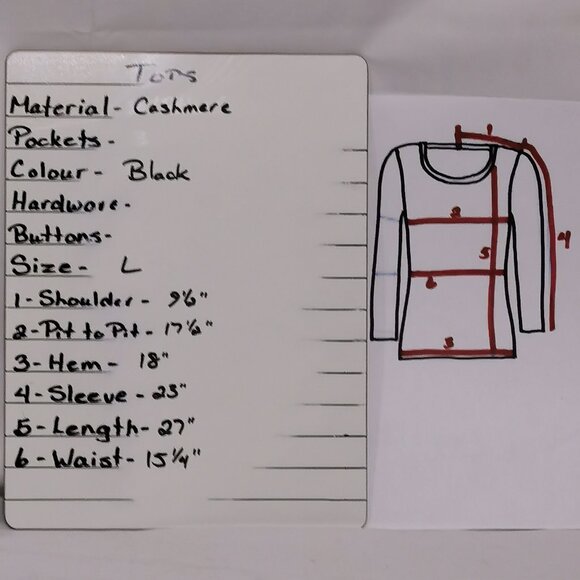 Tops
Material - Cashmere
Pockets -
Colour - Black
Hardware -
Buttons -
Size - L
1 - Shoulder - 9½"
2 - Pit to Pit - 17½"
3 - Hem - 18"
4 - Sleeve - 23"
5 - Length - 27"
6 - Waist - 15¼"
1
2
4
5
6
3